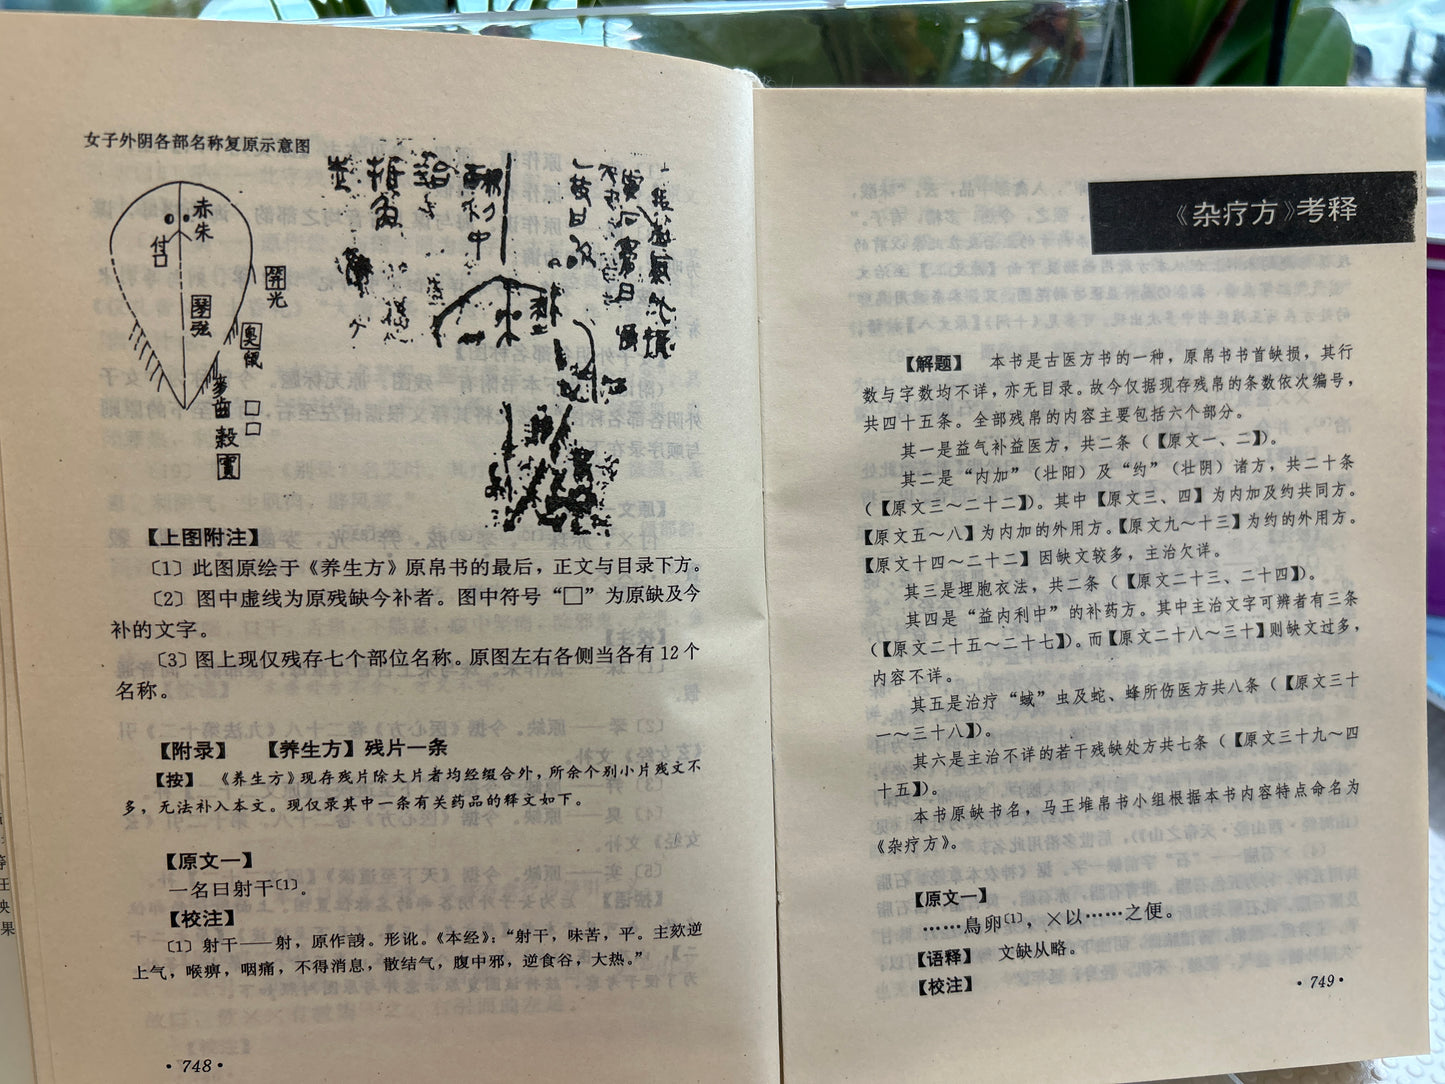 女子外阴各部名称复原示意图
赤朱
付
琴弦
笄光
臭鼠
麦齿
□□
榖
實
【上图附注】
〔1〕此图原绘于《养生方》原帛书的最后，正文与目录下方。
〔2〕图中虚线为原残缺今补者。图中符号“□”为原缺及今
补的文字。
〔3〕图上现仅残存七个部位名称。原图左右各侧当各有12个
名称。
【附录】 【养生方】残片一条
【按】 《养生方》现存残片除大片者均经缀合外，所余个别小片残文不
多，无法补入本文。现仅录其中一条有关药品的释文如下。
【原文一】
一名曰射干〔1〕。
【校注】
〔1〕射干——射，原作䠶。形讹。《本经》：“射干，味苦，平。主欬逆
上气，喉痹，咽痛，不得消息，散结气，腹中邪，逆食谷，大热。”
·748·
《杂疗方》考释
【解题】 本书是古医方书的一种，原帛书书首缺损，其行
数与字数均不详，亦无目录。故今仅据现存残帛的条数依次编号，
共四十五条。全部残帛的内容主要包括六个部分。
其一是益气补益医方，共二条（【原文一、二】）。
其二是“内加”（壮阳）及“约”（壮阴）诸方，共二十条
（【原文三～二十二】）。其中【原文三、四】为内加及约共同方。
【原文五～八】为内加的外用方。【原文九～十三】为约的外用方。
【原文十四～二十二】因缺文较多，主治欠详。
其三是埋胞衣法，共二条（【原文二十三、二十四】）。
其四是“益内利中”的补药方。其中主治文字可辨者有三条
（【原文二十五～二十七】）。而【原文二十八～三十】则缺文过多，
内容不详。
其五是治疗“蜮”虫及蛇、蜂所伤医方共八条（【原文三十
一～三十八】）。
其六是主治不详的若干残缺处方共七条（【原文三十九～四
十五】）。
本书原缺书名，马王堆帛书小组根据本书内容特点命名为
《杂疗方》。
【原文一】
……鳥卵〔1〕，×以……之便。
【语释】 文缺从略。
【校注】
·749·